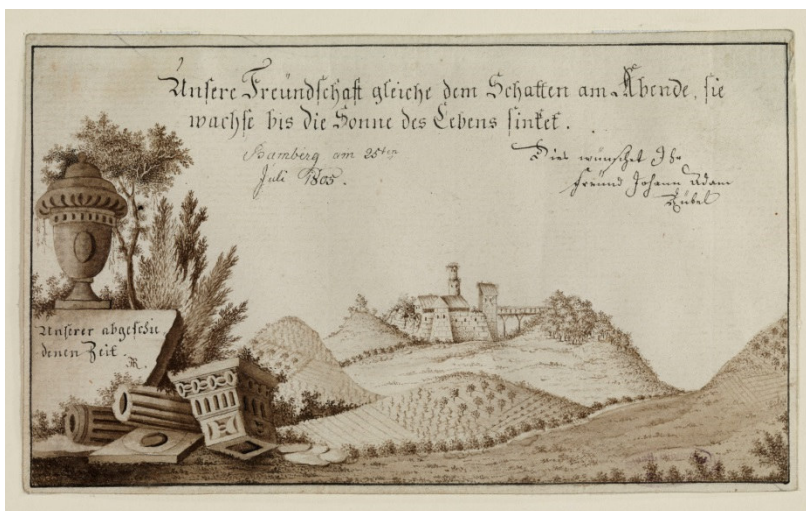 Unsere Freündschaft gleiche dem Schatten am Abende, sie
wachse bis die Sonne des Lebens sinket.
Bamberg am 25ten
Juli 1805.
Dies wünschet Ihr
Freund Johann Adam
Unserer abgeschie
denen Zeit.
R.